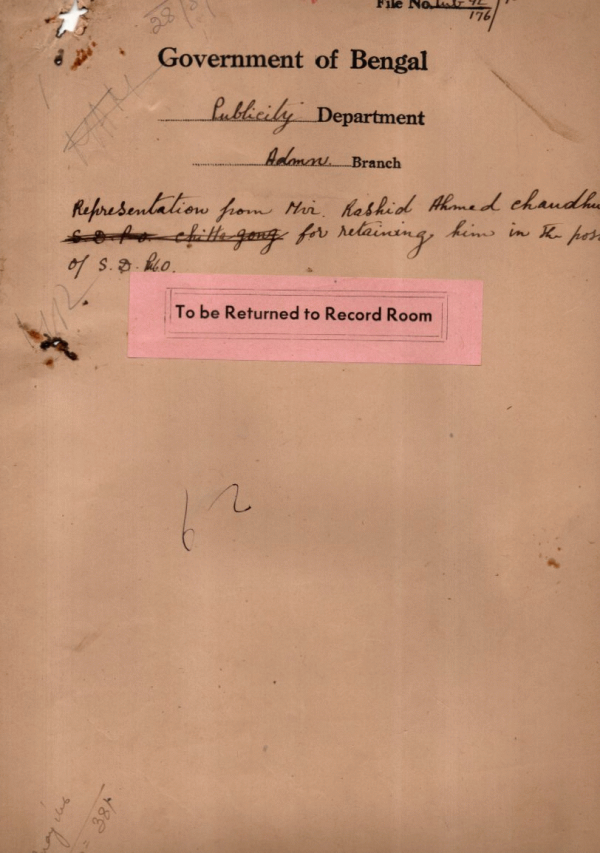 28/3/
File No.
176/
Government of Bengal
Publicity Department
Admn. Branch
Representation from Mir. Rashid Ahmed chaudhu
S. D. P.O. chittagong for retaining him in the pos
of S. D. P.O.
To be Returned to Record Room
62
38/